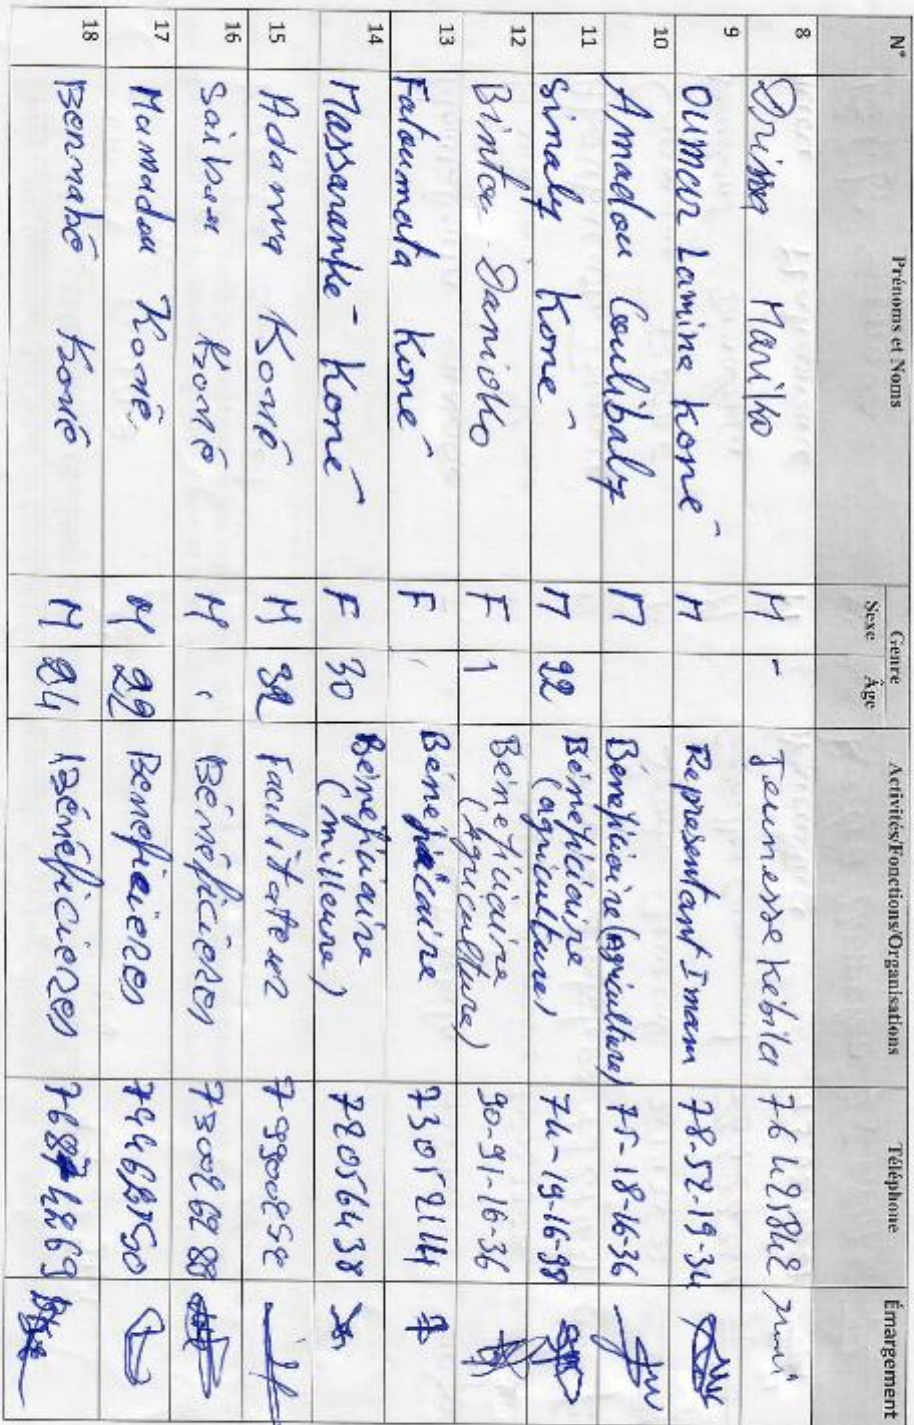 N° Prénoms et Noms Genre Activités/Fonctions/Organisations Téléphone Émargement
Sexe Âge
8 Drissa Mariko M - Jeunesse Kébila 76425842
9 Oumar Lamine Koné M Representant Imam 78-52-19-34
10 Amadou Coulibaly M Bénéficiaire (agriculture) 75-18-16-36
11 Sinaly Koné M 22 Bénéficiaire (agriculture) 74-19-16-98
12 Binta Daniоko F 1 Bénéficiaire (Agriculture) 90-91-16-36
13 Fatoumata Koné F Bénéficaire 73052144
14 Massaranke - Koné F 30 Bénéficiaire (milleure) 72056438
15 Adama Koné M 32 Facilitateur 79900252
16 Koné M Bénéficieres 73002628
17 Mamadou Koné M 29 Beneficieres
18 Bernabé Koné M 24 Bénéficieres